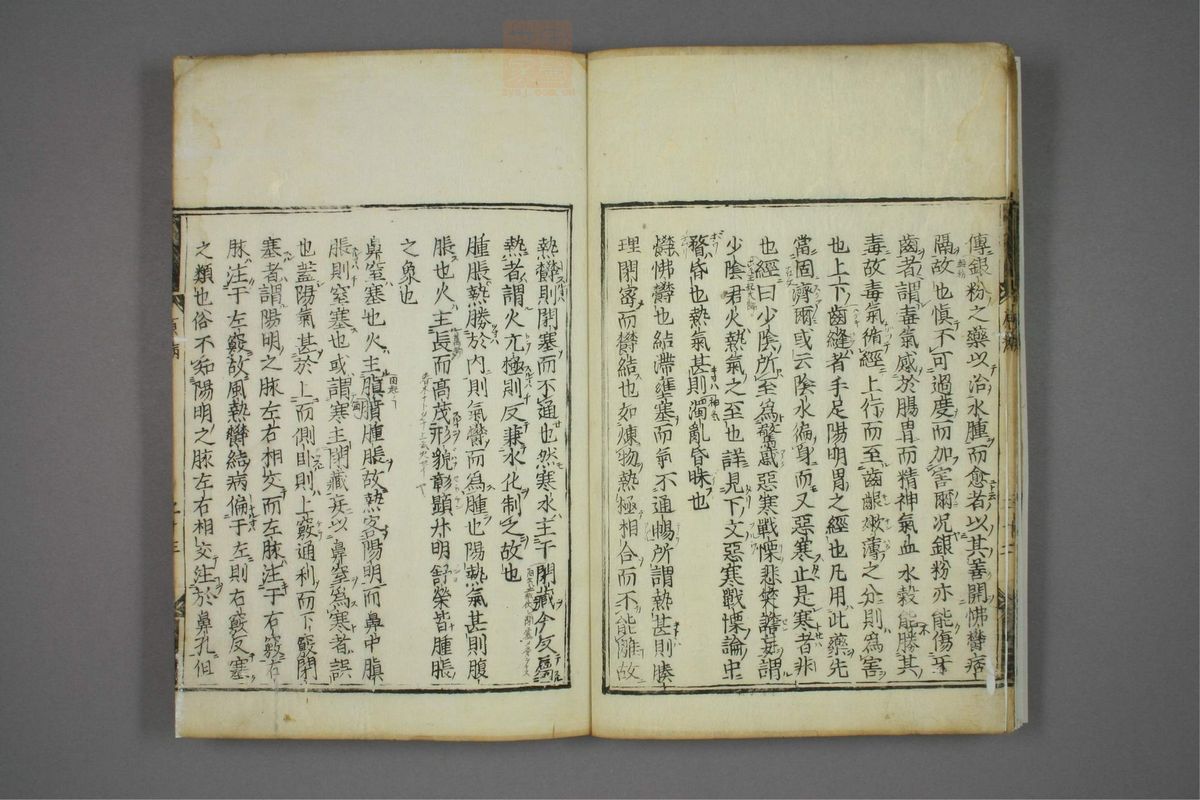 傳銀粉之藥以治水腫而愈者以其善開怫鬱痞
隔故也慎不可過度而加害爾况銀粉亦能傷牙
齒者謂毒氣感於腸胃而精神氣血水榖能勝其
毒故毒氣循經上行而至齒齦嫩薄之分則為害
也上下齒縫者手足陽明胃之經也凡用此藥先
當固濟爾或云陰水徧身而又惡寒止是寒者非
也經曰少陰所至為驚惑惡寒戰慄悲笑譫妄謂
少陰君火熱氣之至也詳見下文惡寒戰慄論中
瞀昏也熱氣甚則濁亂昏昧也
鬱怫鬱也結滯壅塞而氣不通暢所謂熱甚則腠
理閉密而鬱結也如煉物熱極相合而不能離故
熱鬱則閉塞而不通也然寒水主于閉藏今反屬
熱者謂火亢極則反兼水化制之故也
腫脹熱勝於内則氣鬱而為腫也陽熱氣甚則腹
脹也火主長而高茂形貌彰顯升明舒榮皆腫脹
之象也
鼻窒窒塞也火主䐜膹腫脹故熱客陽明而鼻中䐜
脹則窒塞也或謂寒主閉藏妄以鼻窒為寒者誤
也蓋陽氣甚於上而側卧則上竅通利而下竅閉
塞者謂陽明之脉左右相交而左脉注于右竅右
脉注于左竅故風熱鬱結病偏于左則右竅反塞
之類也俗不知陽明之脉左右相交注於鼻孔但